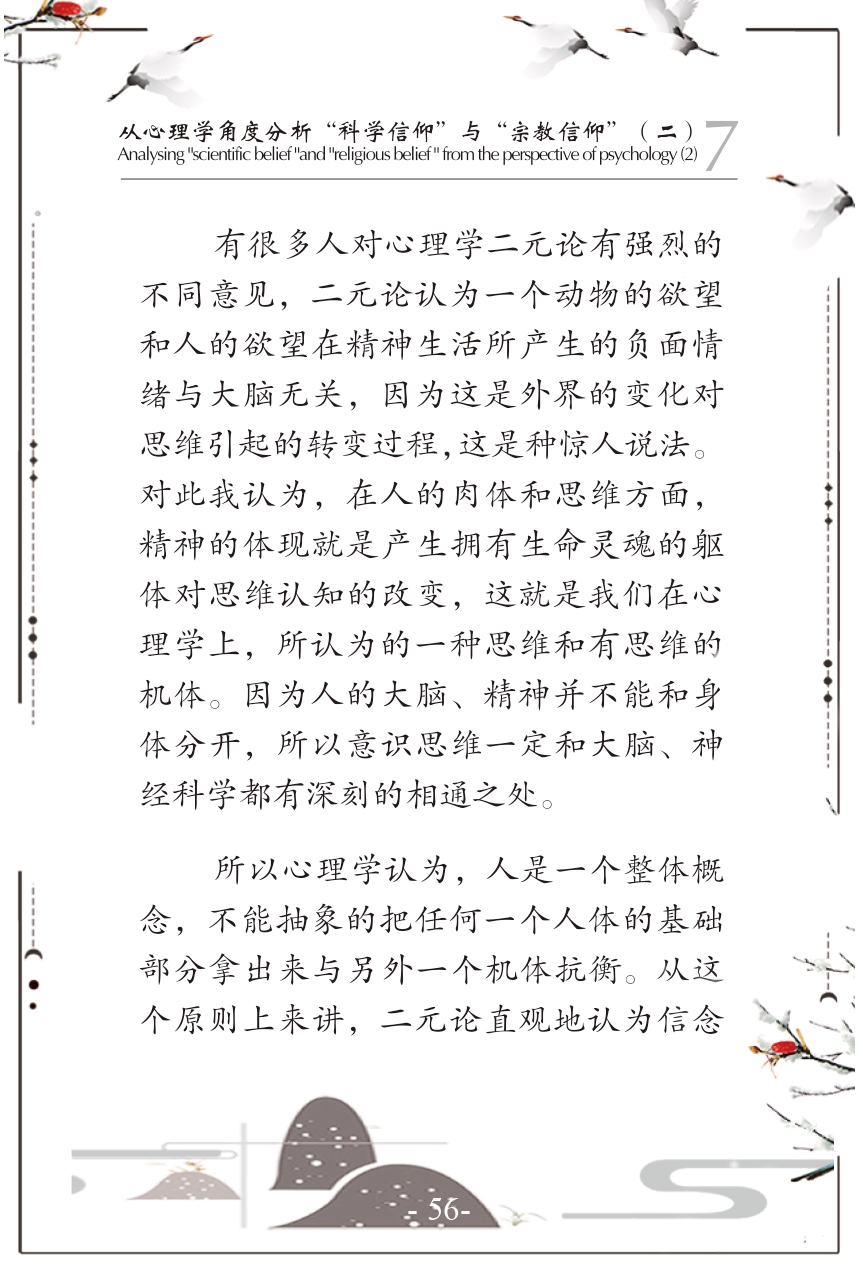 从心理学角度分析“科学信仰”与“宗教信仰”（二）7
Analysing "scientific belief "and "religious belief " from the perspective of psychology (2)
有很多人对心理学二元论有强烈的
不同意见，二元论认为一个动物的欲望
和人的欲望在精神生活所产生的负面情
绪与大脑无关，因为这是外界的变化对
思维引起的转变过程,这是种惊人说法。
对此我认为，在人的肉体和思维方面，
精神的体现就是产生拥有生命灵魂的躯
体对思维认知的改变，这就是我们在心
理学上，所认为的一种思维和有思维的
机体。因为人的大脑、精神并不能和身
体分开，所以意识思维一定和大脑、神
经科学都有深刻的相通之处。
所以心理学认为，人是一个整体概
念，不能抽象的把任何一个人体的基础
部分拿出来与另外一个机体抗衡。从这
个原则上来讲，二元论直观地认为信念
- 56-